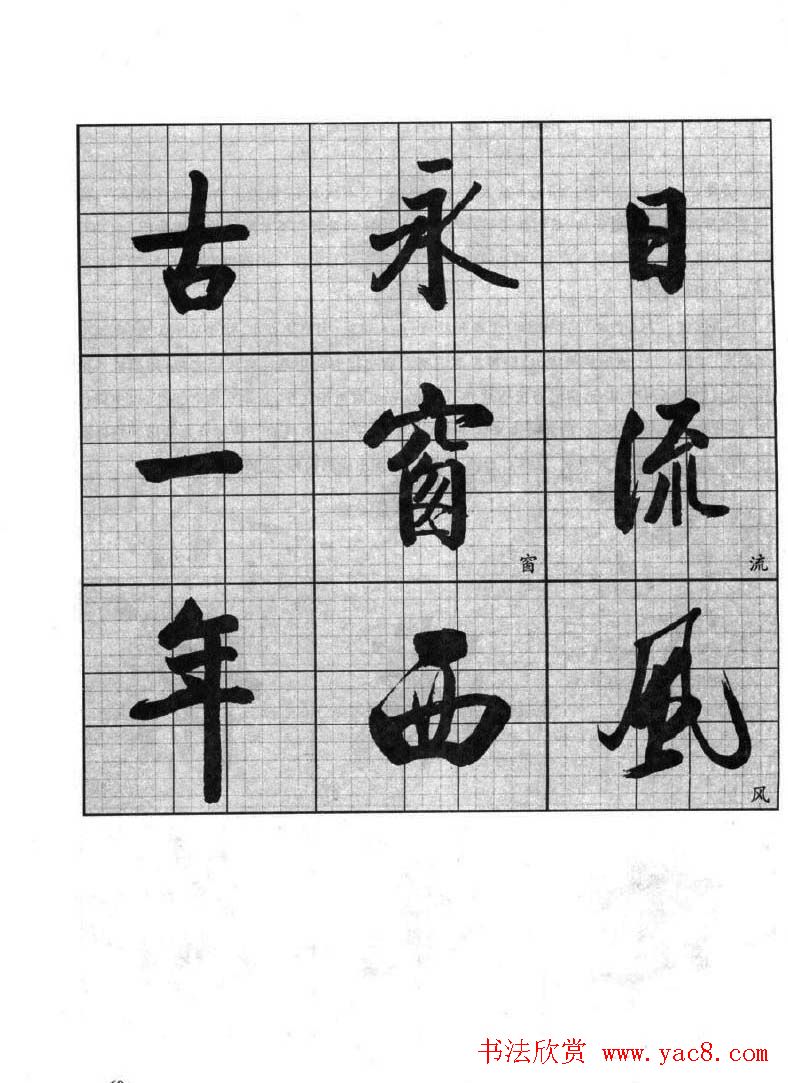 日流風
流
风
永窗西
窗
古一年
书法欣赏 www.yac8.com